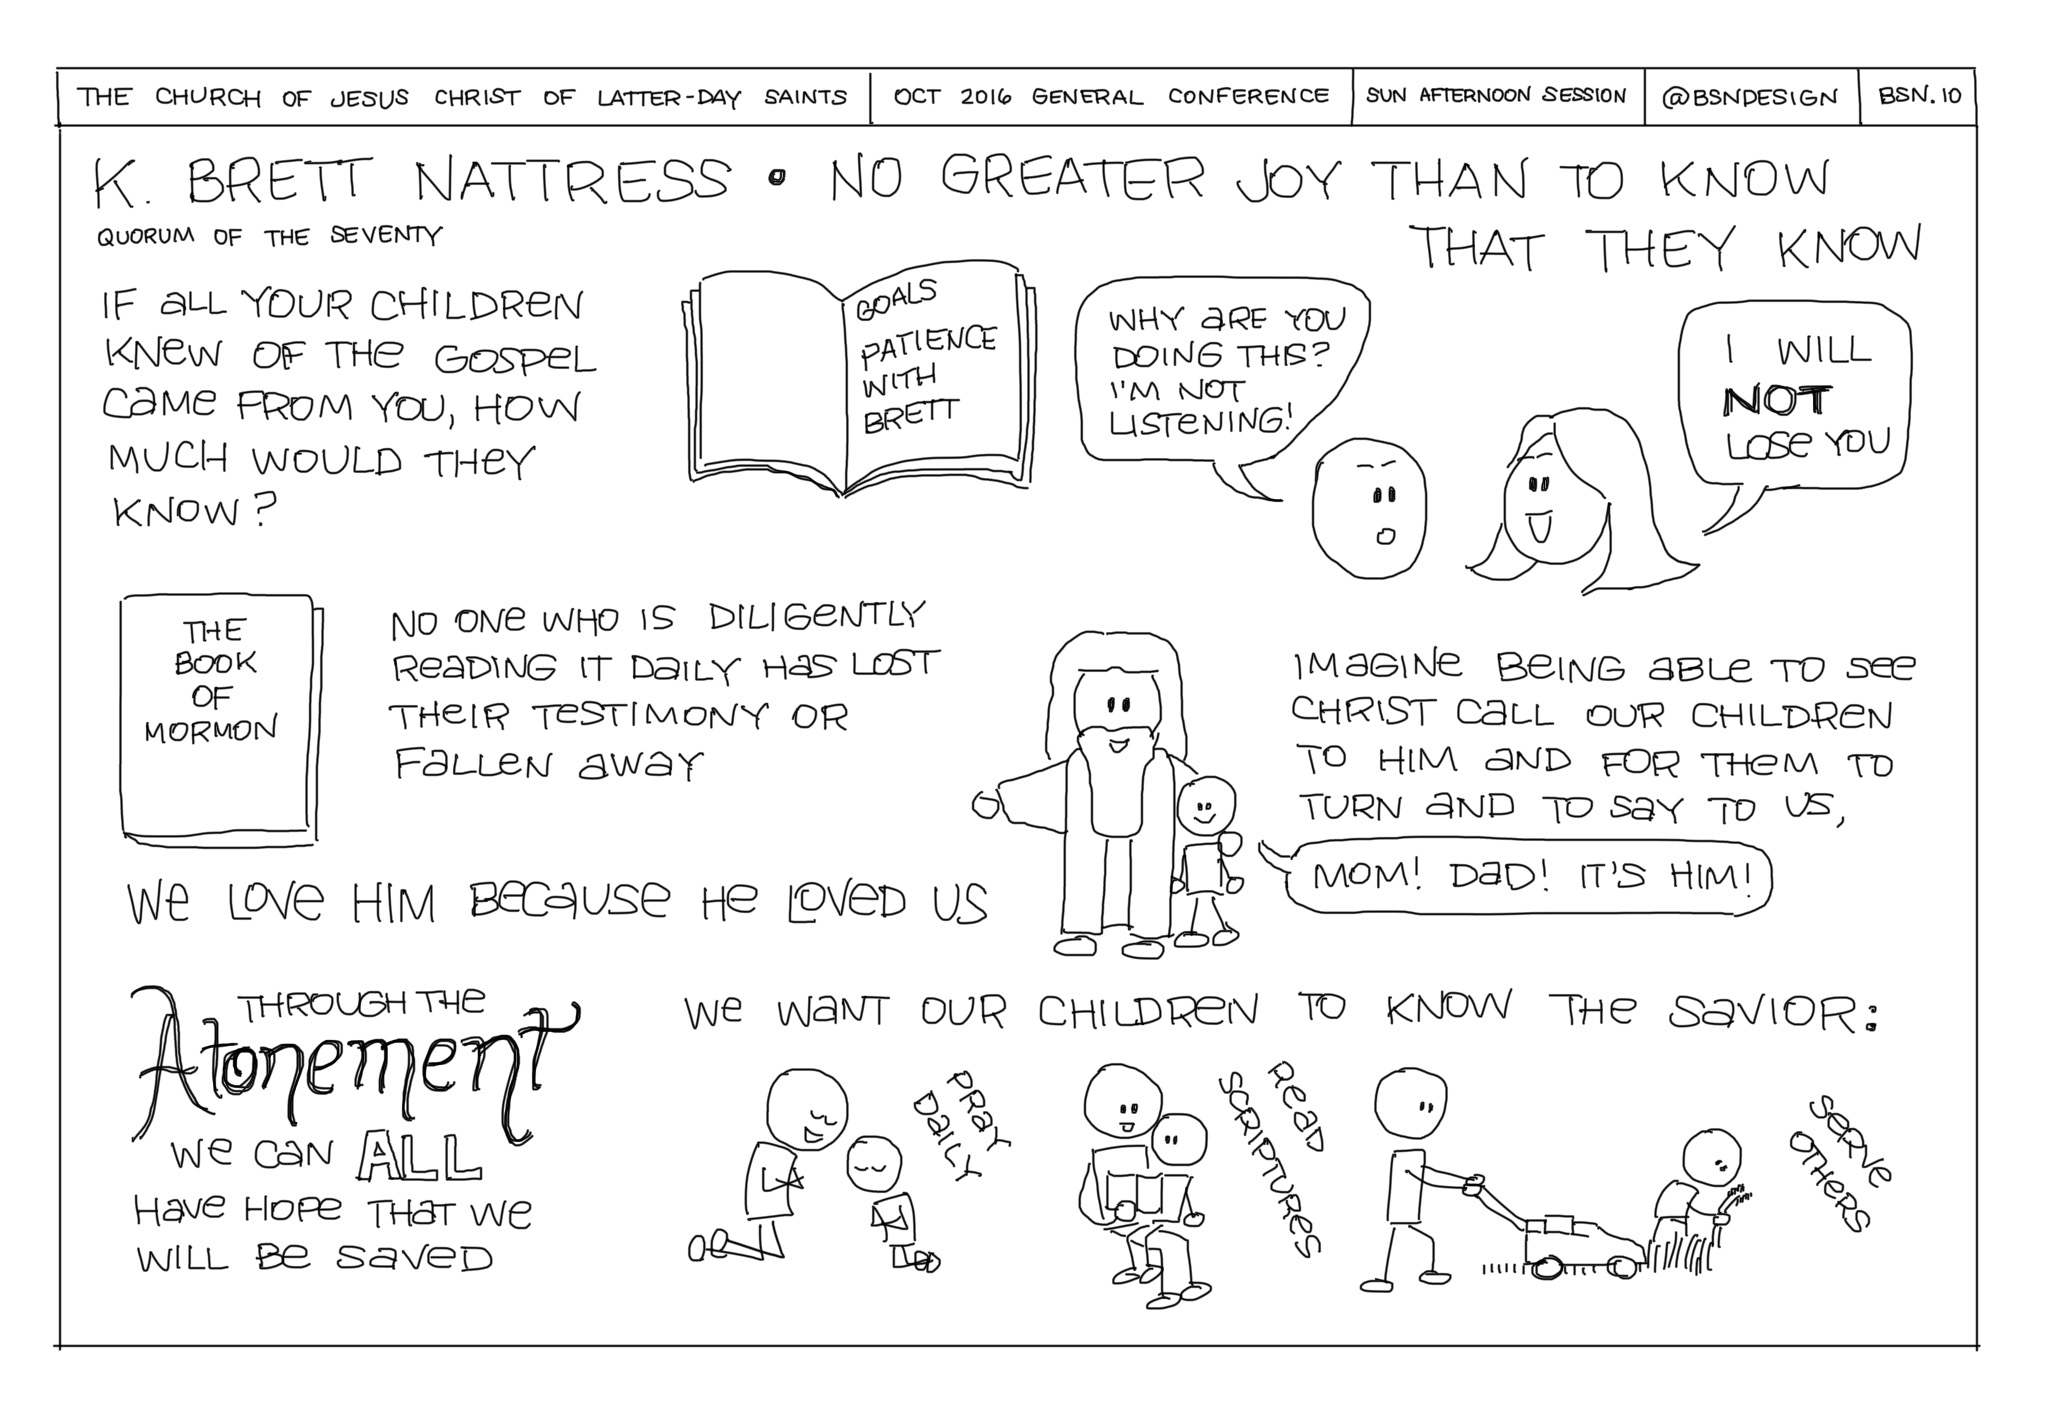 THE CHURCH OF JESUS CHRIST OF LATTER-DAY SAINTS
OCT 2016 GENERAL CONFERENCE
SUN AFTERNOON SESSION
@BSNDESIGN
BSN.10
K. BRETT NATTRESS • NO GREATER JOY THAN TO KNOW
THAT THEY KNOW
QUORUM OF THE SEVENTY
IF aLL YOUR CHILDReN
KNeW OF THe GOSPeL
CaMe FROM YOU, HOW
MUCH WOULD THeY
KNOW?
GOALS
PATIENCE
WITH
BRETT
WHY aRE YOU
DOING THIS?
I'M NOT
LISTeNING!
I WILL
NOT
LOSe YOU
THE
BOOK
OF
MORMON
NO ONe WHO IS DILIGeNTLY
ReaDING IT DaILY Has LOST
THeIR TeSTIMONY OR
FaLLEN aWaY
IMaGINe BeING aBLe TO See
CHRIST CaLL OUR CHILDREN
TO HIM aND FOR THeM TO
TURN aND TO SaY TO US,
MOM! DaD! IT'S HIM!
We LOVe HIM BeCaUSe He LOVeD US
THROUGH THe
Atonement
We CaN ALL
HaVe HOPe THaT We
WILL Be SaVeD
We WaNT OUR CHILDReN TO KNOW THe SaVIOR:
PRaY
DaILY
ReaD
SCRIPTUReS
SeRVe
OTHeRS